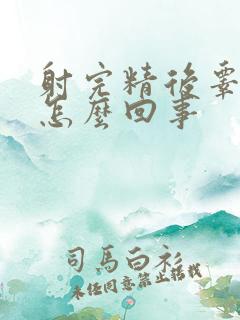 射完精後
怎麼回事
司馬白衫
未經同意禁止搭載